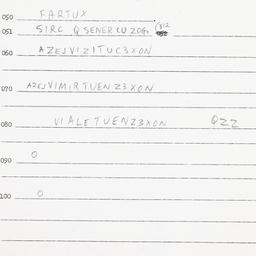 050 FARTUX
051 SIRC QSENERCUZOGO 312
060 AZEJVIZITUC3XON
070 AZEJVIMIRTUENZ3XON
080 VIALETUENZ3XON QZZ
090 O
100 O